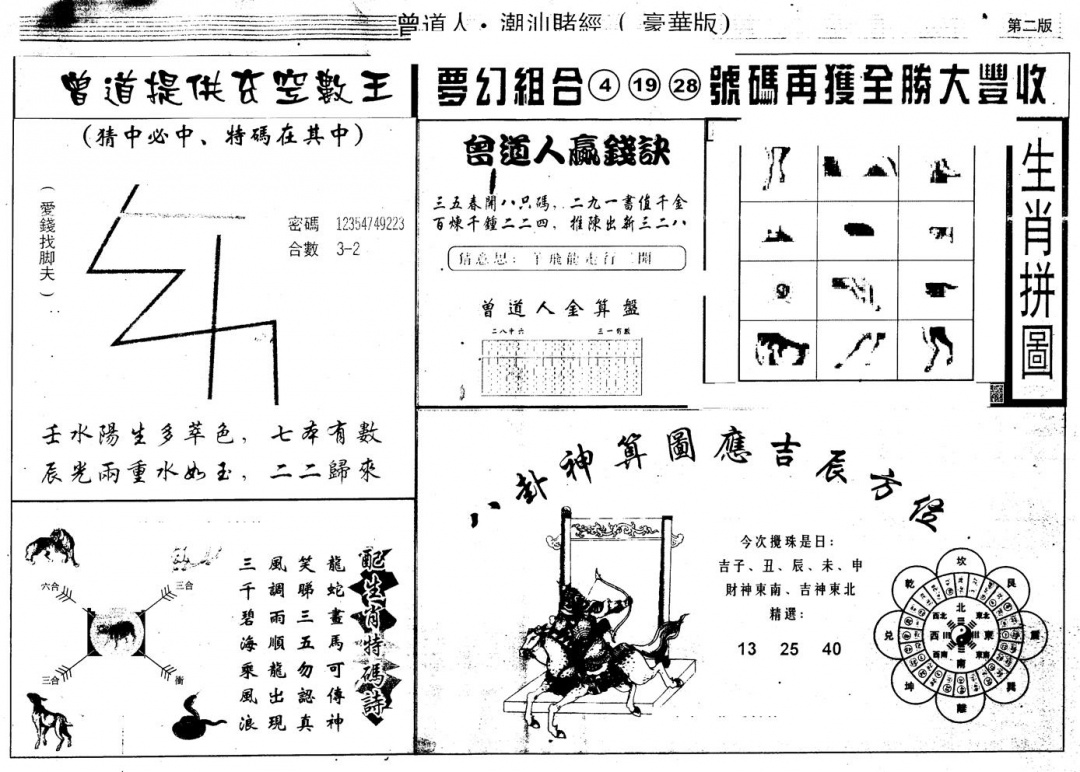 曾道人·潮汕賭經（豪華版）
第二版
曾道提供玄空數王
(猜中必中、特碼在其中)
（愛錢找脚夫）
密碼 12354749223
合數 3-2
壬水陽生多萃色，七本有數
辰光兩重水如玉，二二歸來
夢幻組合④⑲㉘號碼再獲全勝大豐收
曾道人贏錢訣
三五春開八只碼，二九一書值千金
百煉千鍾二二四，推陳出新三二八
猜意思：羊飛龍走行二開
曾道人金算盤
生肖拼圖
配生肖特碼詩
龍蛇畫馬可傳神
笑睇三五勿認真
風調雨順龍出現
三千碧海乘風浪
六合
三合
三合
衝
八卦神算圖應吉辰方位
今次攪珠是日：
吉子、丑、辰、未、申
財神東南、吉神東北
精選：
13 25 40
坎
艮
震
巽
離
坤
兌
乾
北
東北
東
東南
南
西南
西
西北